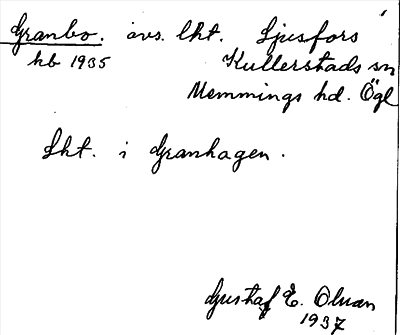 Granbo. avs. lht. Ljusfors
kb 1935 Kullerstads sn
Memmings hd. Ögl
Lht. i Granhagen.
Gustaf E. Olsson
1937